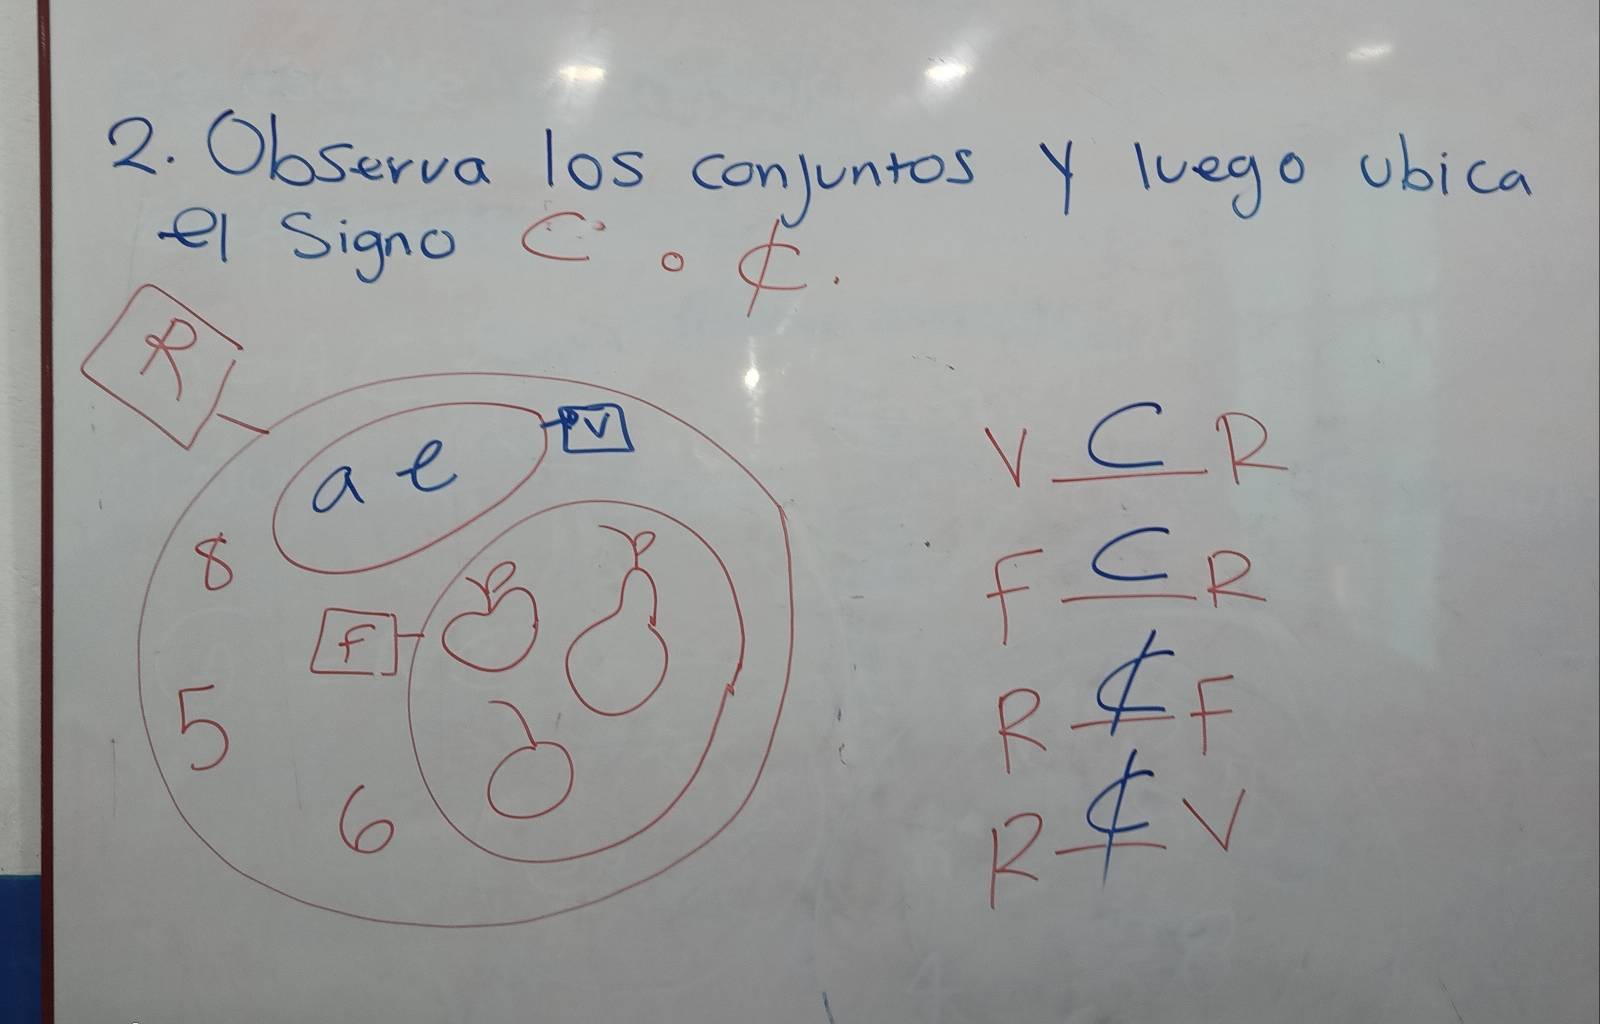 2. Observa los conjuntos y luego ubica
el signo ⊂ o ⊄.
R
a e
V
8
F
5
6
V ⊂ R
F ⊂ R
R ⊄ F
R ⊄ V